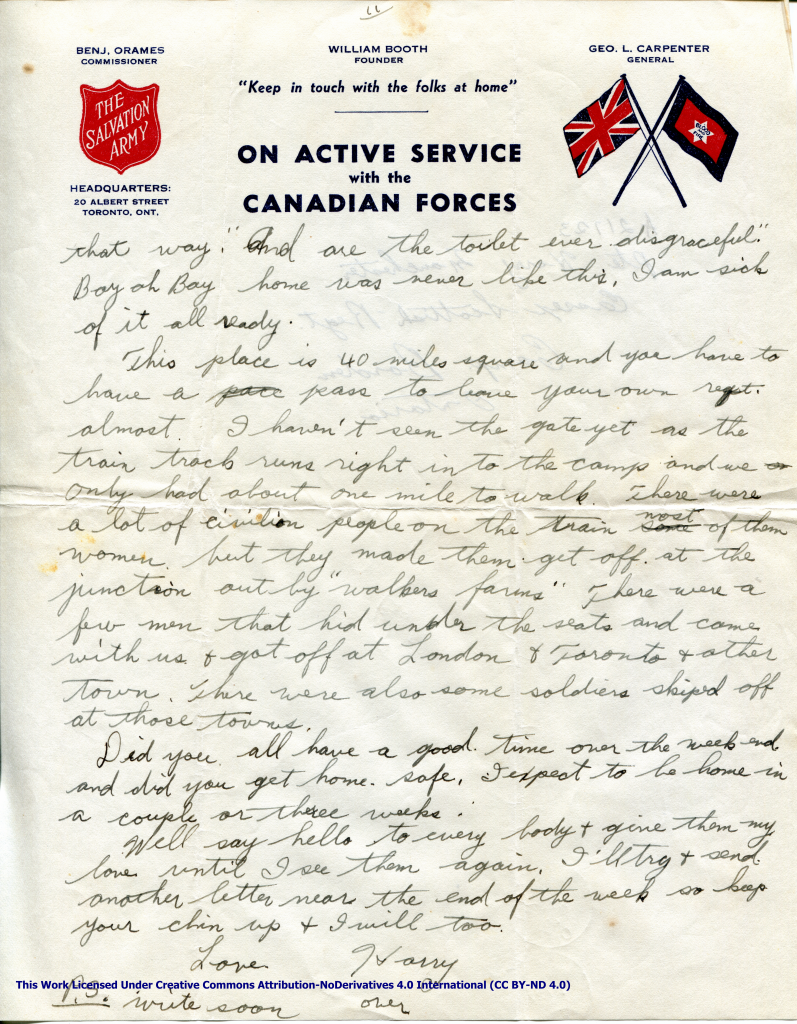 "
BENJ. ORAMES
COMMISSIONER
THE
SALVATION
ARMY
HEADQUARTERS:
20 ALBERT STREET
TORONTO, ONT.
WILLIAM BOOTH
FOUNDER
"Keep in touch with the folks at home"
ON ACTIVE SERVICE
with the
CANADIAN FORCES
GEO. L. CARPENTER
GENERAL
BLOOD
AND
FIRE
that way." And are the toilet ever disgraceful."
Boy oh Boy home was never like this, I am sick
of it all ready.
This place is 40 miles square and you have to
have a pace pass to leave your own regt.
almost. I haven't seen the gate yet as the
train track runs right in to the camp and we
only had about one mile to walk. There were
a lot of civilion people on the train some most of them
women. but they made them get off at the
junction out by "walkers farms" There were a
few men that hid under the seats and came
with us & got off at London & Toronto & other
town. There were also some soldiers skiped off
at those towns.
Did you all have a good time over the week end
and did you get home safe, I expect to be home in
a couple or three weeks.
Well say hello to every body & give them my
love until I see them again. I'll try & send
another letter near the end of the week so keep
your chin up & I will too.
Love Harry
P.S. write soon over
This Work Licensed Under Creative Commons Attribution-NoDerivatives 4.0 International (CC BY-ND 4.0)